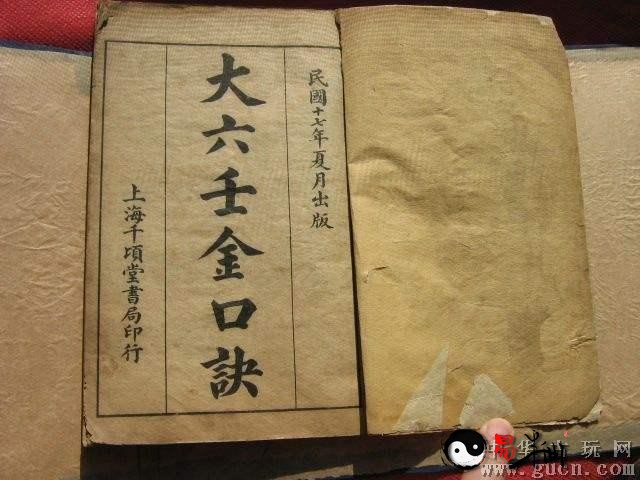 民國十七年夏月出版
大六壬金口訣
上海千頃堂書局印行
華 玩网
www.gucn.com